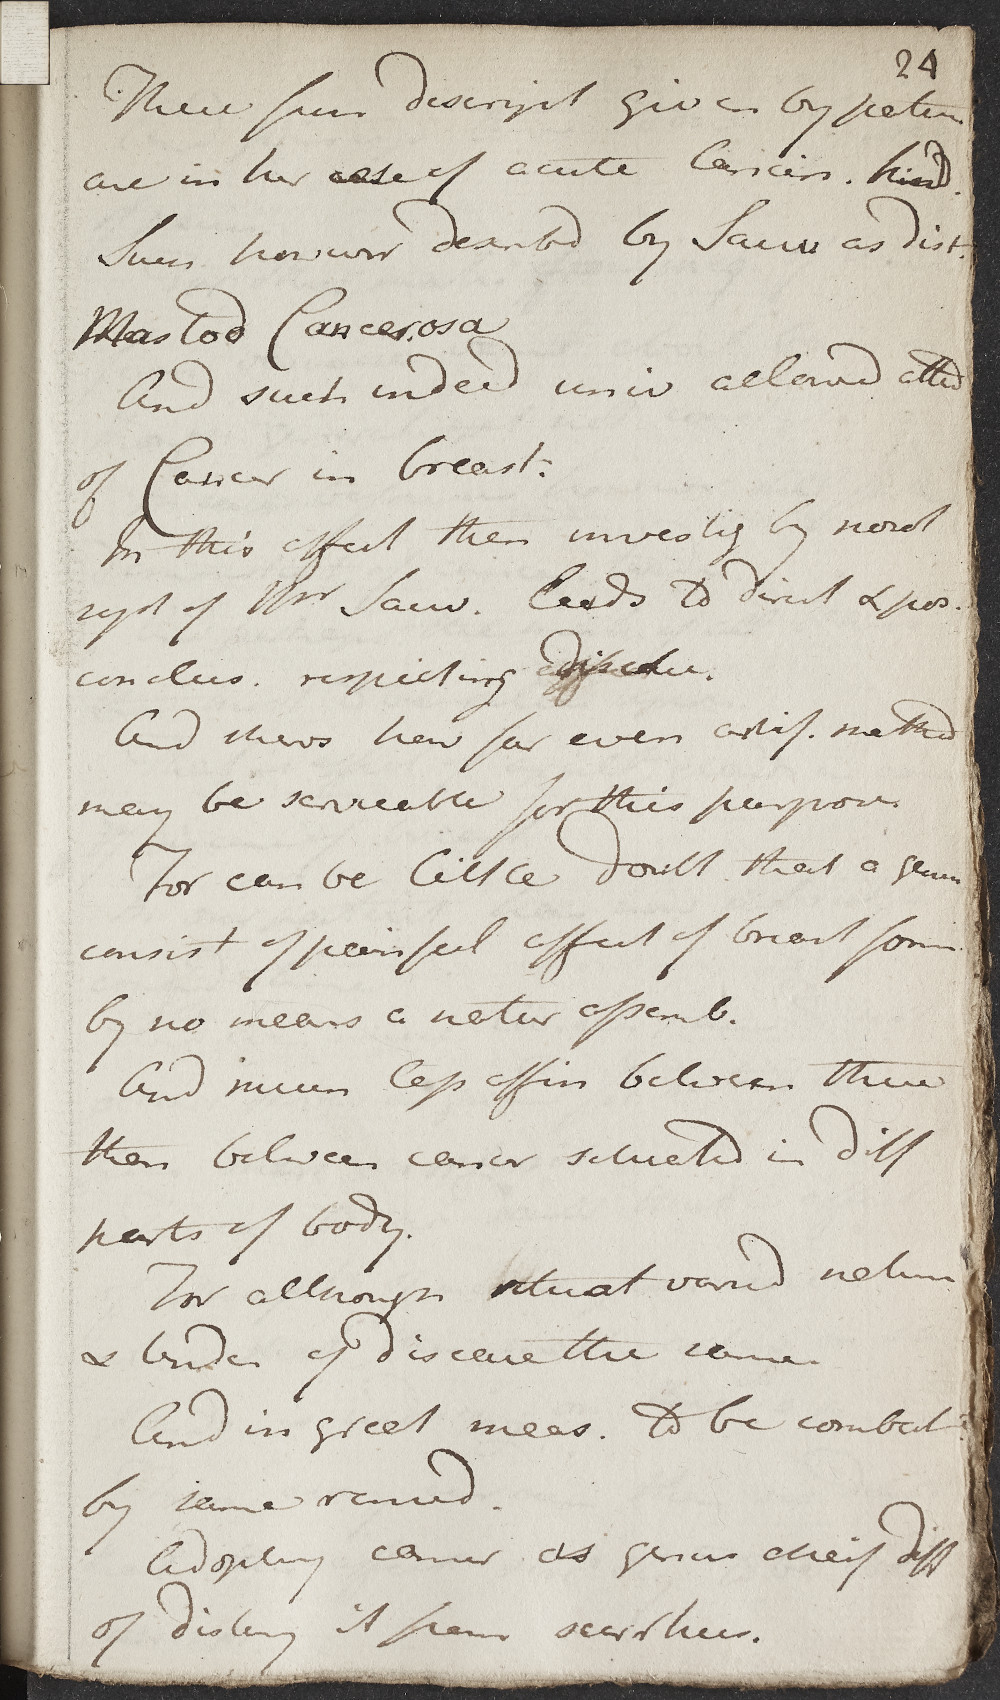 24
These from descript given by patien
are in her case of acute Cancin. kind.
Such however describd by Sauv as dist.
Mastod Cancerosa
And such indeed univ allowd attd
of Cancer in breast.
In this affect then investig by nosol
syst of Mr Sauv. leads to direct & pos.
conclus. respecting
And shews how far even artif. method
may be serviceable for this purpose
For can be little doubt that a genus
consist of painful affect of breast form
by no means a natur assemb.
And much less affin between these
than between cancer situated in diff
parts of body.
For although situat varid nature
& tenden of disease the same
And in great meas. to be combat
by same remed.
Adopting cancer as genus cheif diff
of disting it from scirrhus.